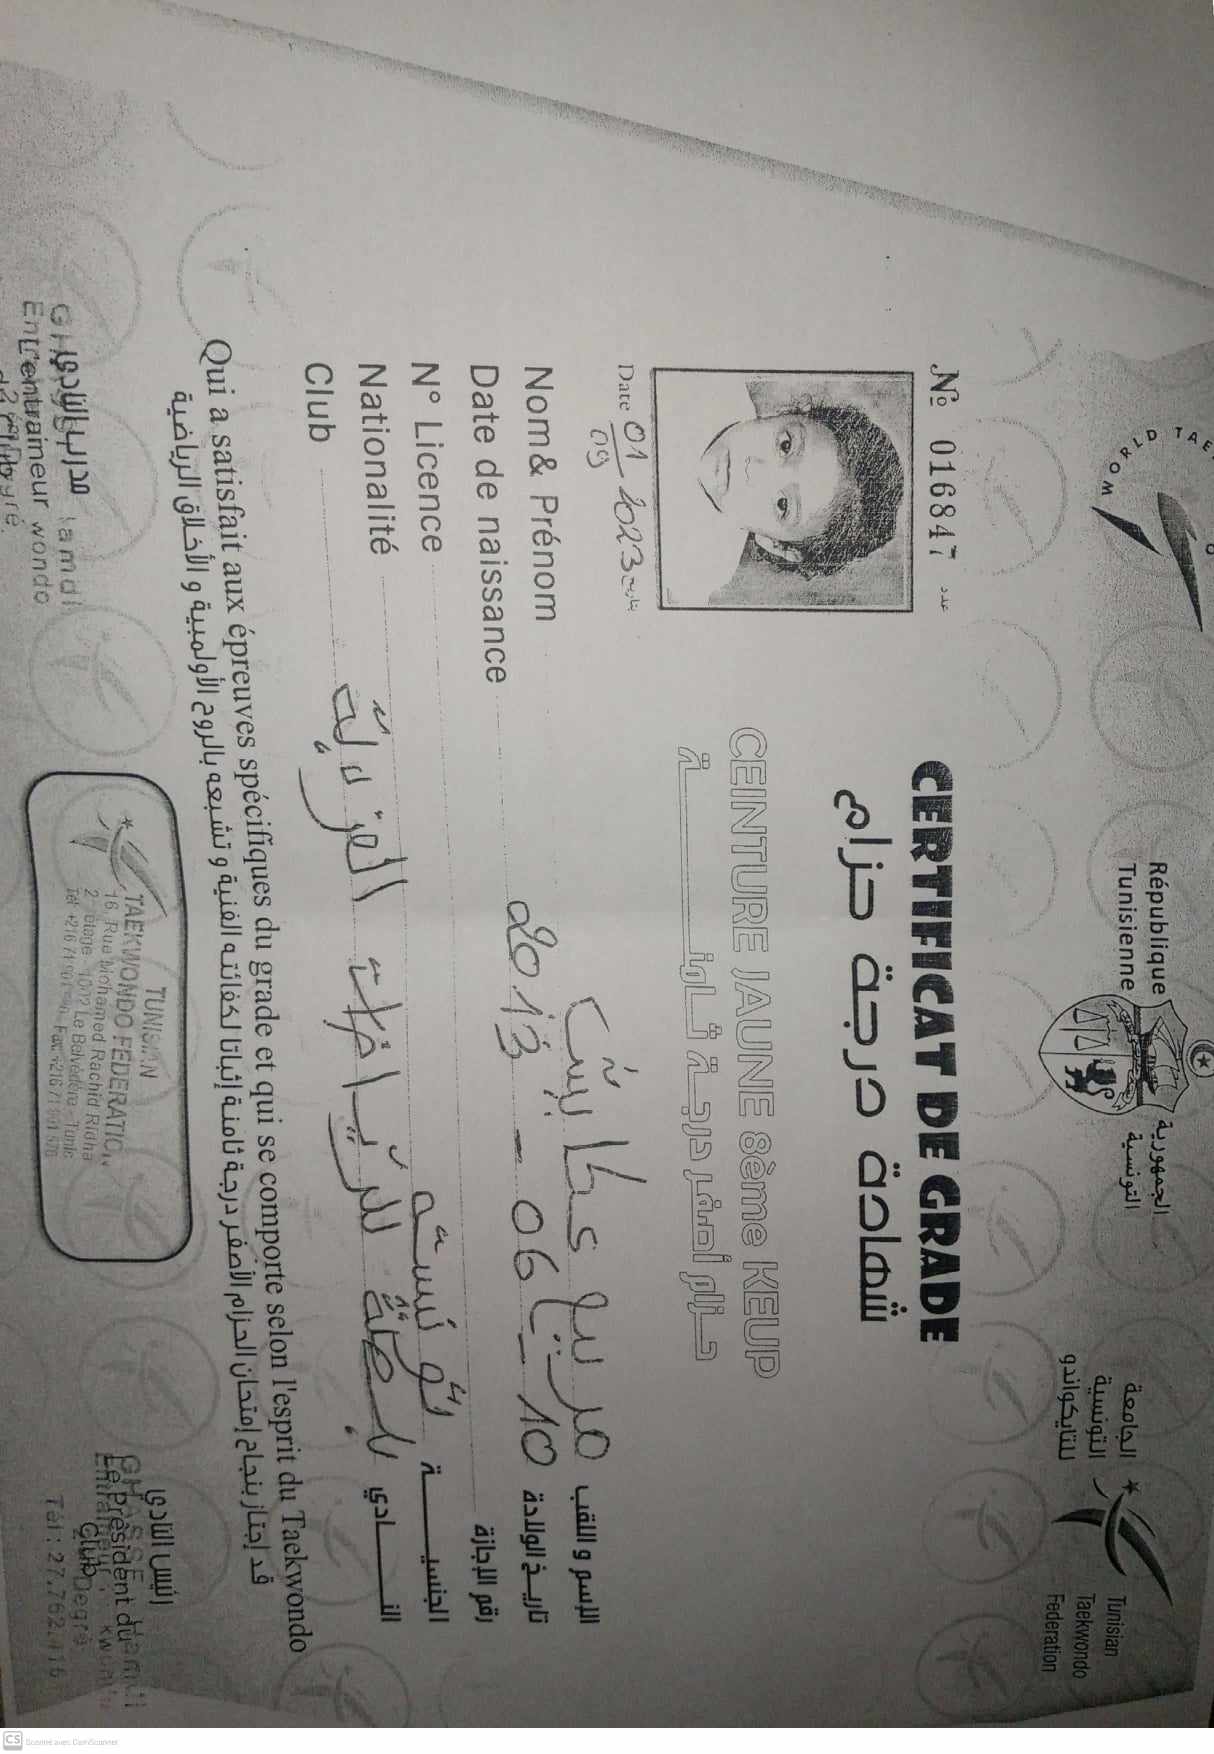 WORLD TAE
République
Tunisienne
الجمهورية
التونسية
الجامعة
التونسية
للتايكواندو
Tunisian
Taekwondo
Federation
№ 016847 عدد
CERTIFICAT DE GRADE
شهادة درجة حزام
CEINTURE JAUNE 8ème KEUP
حزام أصفر درجة ثامنة
Date 01/09 2023 تاريخ
Nom& Prénom الإسم و اللقب
Date de naissance 2013 - 06 - 10 تاريخ الولادة
N° Licence رقم الإجازة
Nationalité تونسية الجنسية
Club للرياضات الفردية النادي
Qui a satisfait aux épreuves spécifiques du grade et qui se comporte selon l'esprit du Taekwondo
قد إجتاز بنجاح إمتحان الحزام الأصفر درجة ثامنة إثباتا لكفائته الفنية و تشبعه بالروح الأولمبية و الأخلاق الرياضية
مدرب النادي
L'entraineur
du Club
TUNISIAN
TAEKWONDO FEDERATION
16, Rue Mohamed Rachid Ridha
2 étage - 1002 Le Belvédère - Tunis
رئيس النادي
Le Président du
Club
CS Scanné avec CamScanner